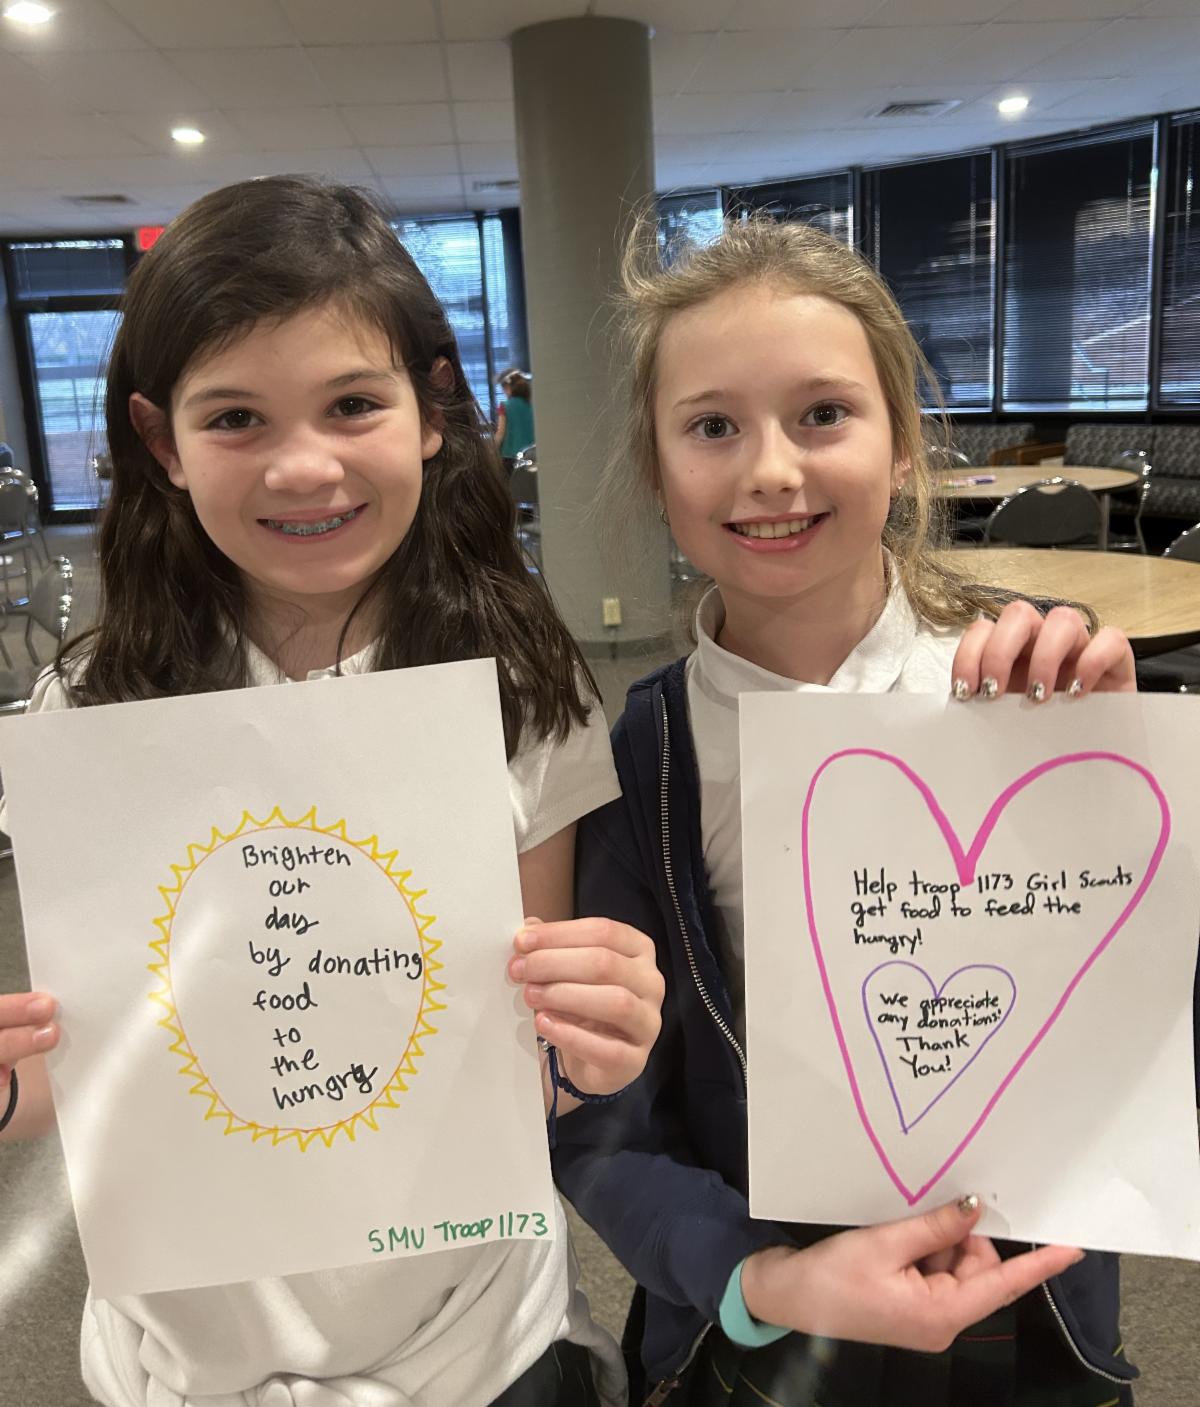 Brighten
our
day
by donating
food
to
the
hungry
SMU Troop 1173
Help troop 1173 Girl Scouts
get food to feed the
hungry!
We appreciate
any donations!
Thank
You!